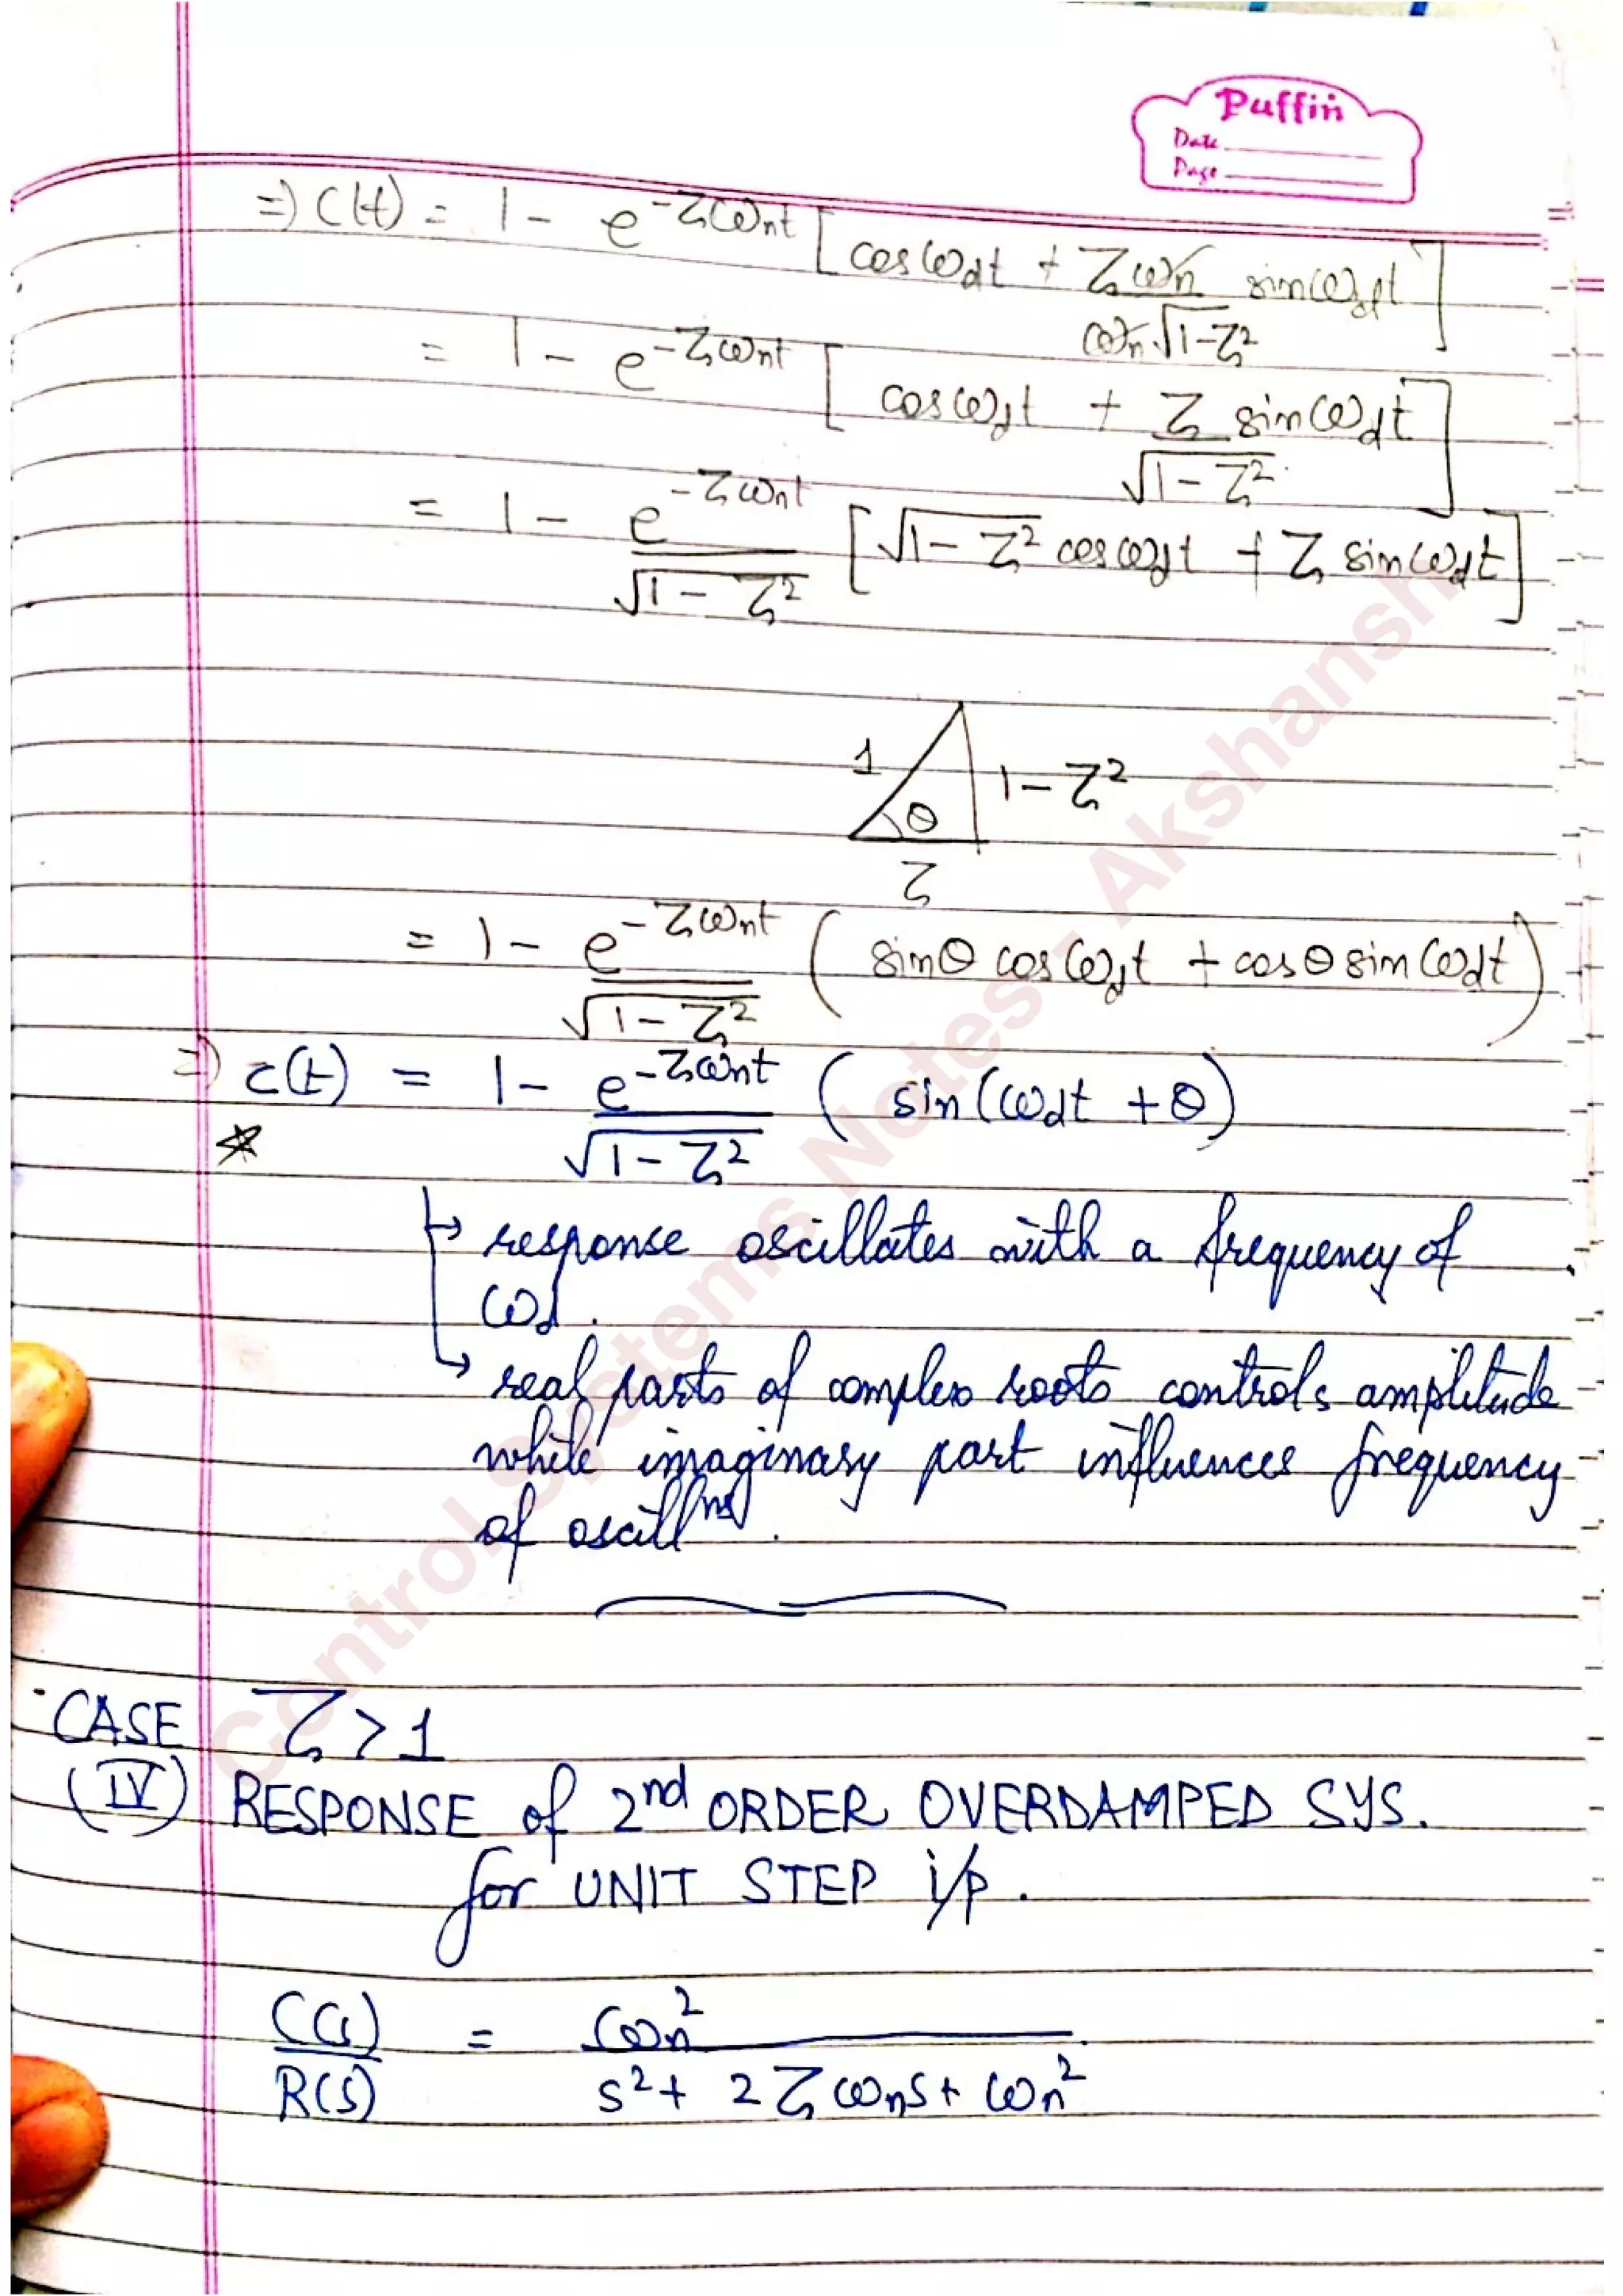 Puffin
Date
Page
⇒ C(t) = 1 - e^{-ζωnt} [cosωdt + ζωn/ωn√1-ζ² sinωdt]
= 1 - e^{-ζωnt} [cosωdt + ζ/√1-ζ² sinωdt]
= 1 - e^{-ζωnt}/√1-ζ² [√1-ζ² cosωdt + ζ sinωdt]
1
1-ζ²
θ
ζ
= 1 - e^{-ζωnt}/√1-ζ² (sinθ cosωdt + cosθ sinωdt)
⇒ c(t) = 1 - e^{-ζωnt}/√1-ζ² (sin(ωdt + θ)
↳ response oscillates with a frequency of
ωd.
↳ real parts of complex roots controls amplitude
while imaginary part influences frequency
of oscillns.
CASE ζ > 1
(IV) RESPONSE of 2nd ORDER OVERDAMPED SYS.
for UNIT STEP i/p.
C(s)/R(s) = ωn²/s² + 2ζωns + ωn²
Control Systems Notes - Akshansh